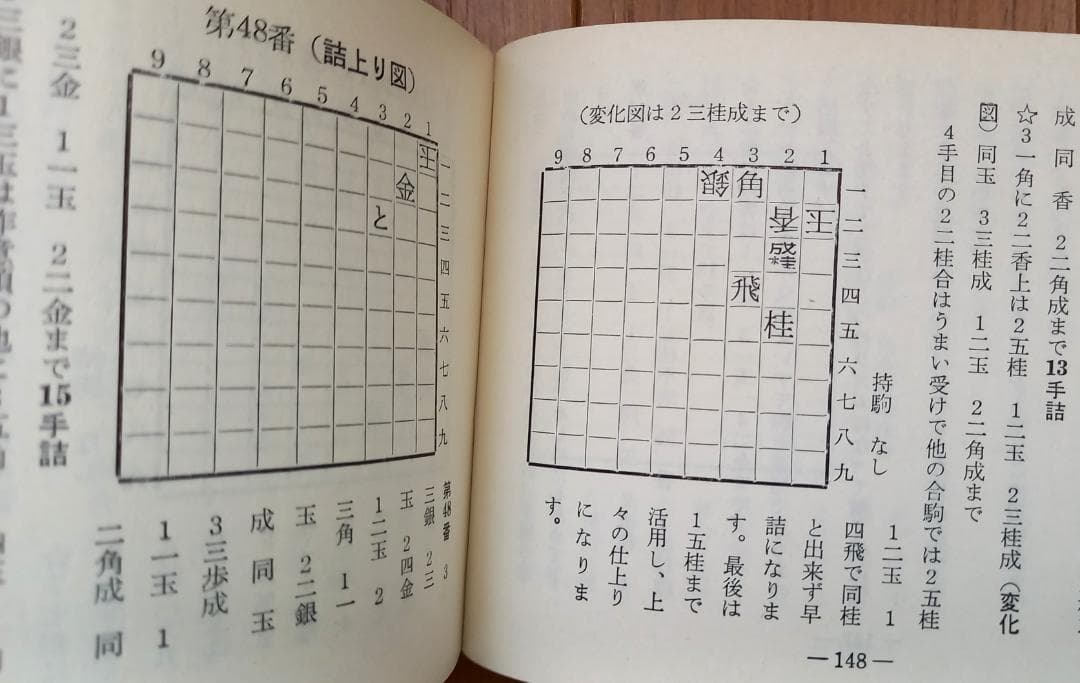 成 同 香 2二角成まで13手詰
☆3一角に2二香上は2五桂 1二玉 2三桂成(変化
図)同玉 3三桂成 1二玉 2二角成まで
4手目の2二桂合はうまい受けで他の合駒では2五桂
1二玉 1
四飛で同桂
と出来ず早
詰になりま
す。最後は
1五桂まで
活用し、上
々の仕上り
になりま
す。
(変化図は2三桂成まで)
9 8 7 6 5 4 3 2 1
銀 角 一
香 王 二
成桂 三
飛 四
桂 五
六
七
八
九
持駒 なし
―148―
第48番(詰上り図)
9 8 7 6 5 4 3 2 1
王 一
金 二
と 三
四
五
六
七
八
九
第48番 3
三銀 2三
玉 2四金
1二玉 2
三角 1一
玉 2二銀
成 同 玉
3三歩成
1一玉 1
二角成 同
2三金 1一玉 2二金まで15手詰